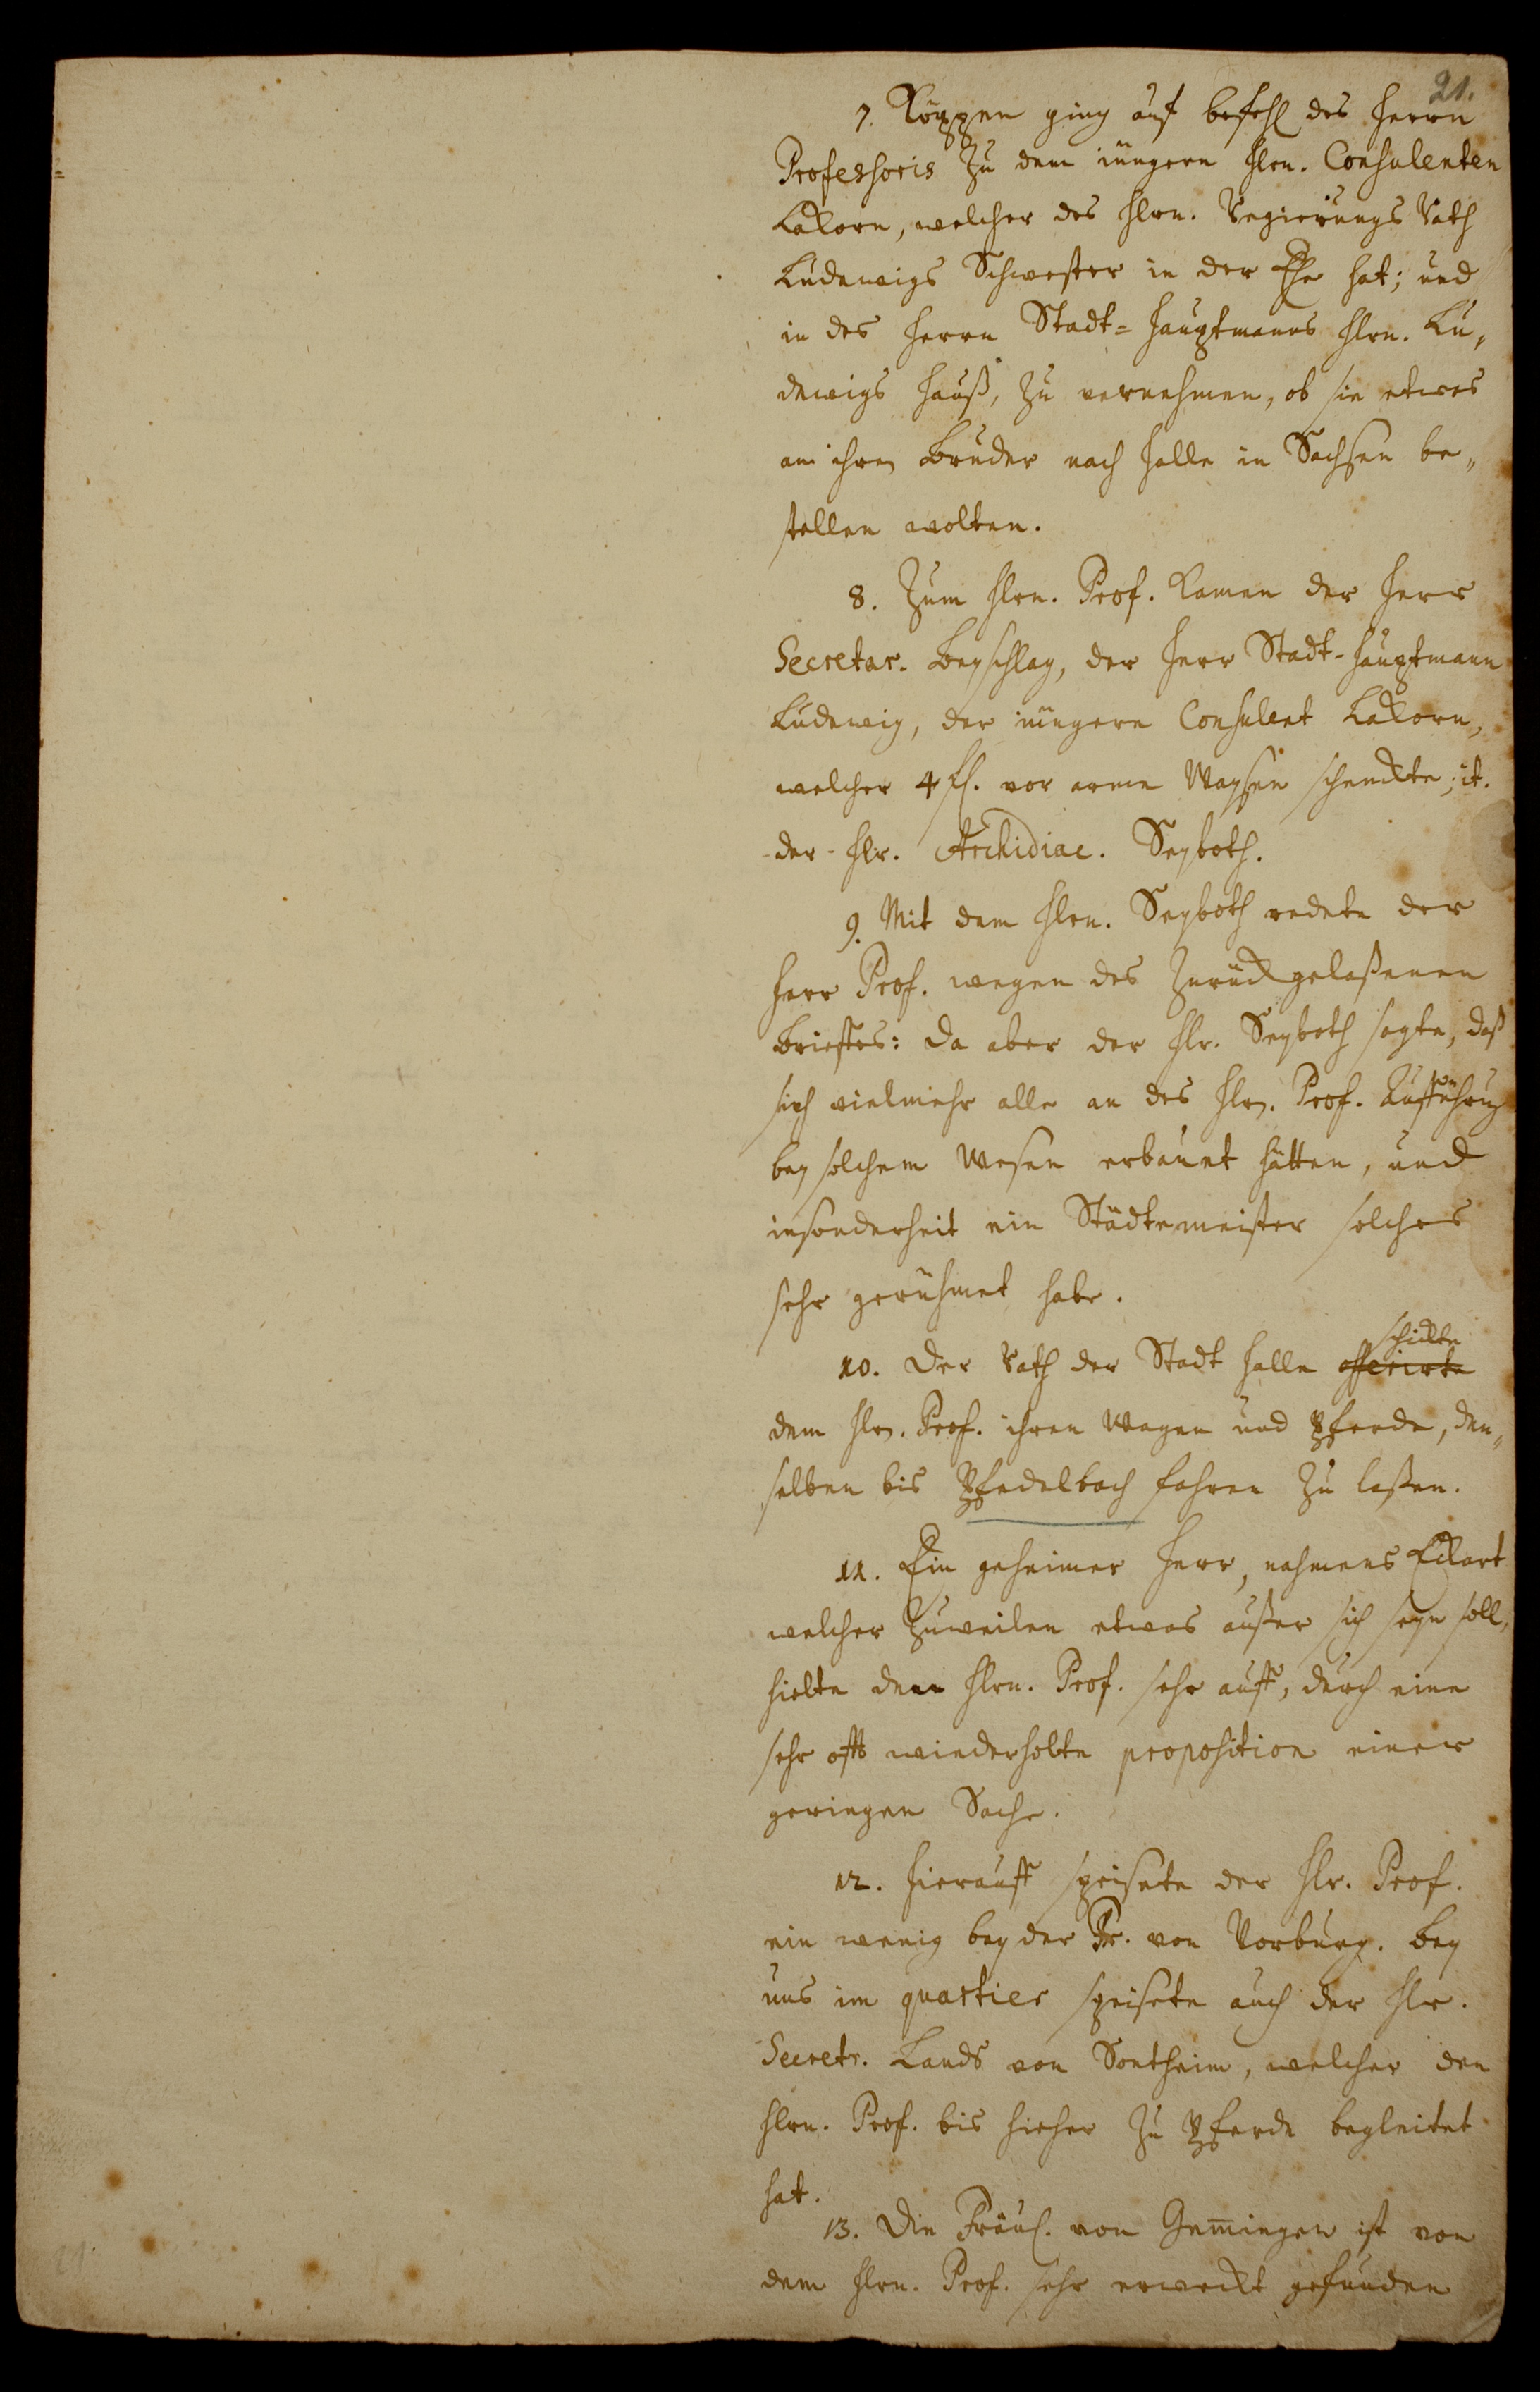 21.
7. Köppen ging auf befehl des Herrn
Professoris zu dem jüngern Hrn. Consulenten
Lackorn, welcher des Hrn. Regierungs Rath
Ludewigs Schwester in der Ehe hat; und
in des Herrn Stadt-Hauptmanns Hrn. Lu-
dewigs Hauß, zu vernehmen, ob sie etwas
an ihren Bruder nach Halle in Sachsen be-
stellen wolten.
8. Zum Hrn. Prof. kamen der Herr
Secretar. Beyschlag, der Herr Stadt-Hauptmann
Ludewig, der jüngere Consulent Lackorn,
welcher 4 fl. vor arme Waysen schenckte; it.
der Hr. Archidiac. Seyboth.
9. Mit dem Hrn. Seyboth redete der
Herr Prof. wegen des zurückgelaßenen
Brieffes: da aber der Hr. Seyboth sagte, daß
sich vielmehr alle an des Hrn. Prof. Aufführung
bey solchem Wesen erbauet hätten, und
insonderheit ein Städtemeister solches
sehr gerühmet habe.
schickte
10. Der Rath der Stadt Halle offerirte
dem Hrn. Prof. ihren Wagen und Pferde, den-
selben bis Pfedelbach fahren zu laßen.
11. Ein geheimer Herr, nahmens Eckart
welcher zuweilen etwas außer sich seyn soll,
hielte den Hrn. Prof. sehr auff, durch eine
sehr offt wiederholte proposition einer
geringen Sache.
12. Hierauff speisete der Hr. Prof.
ein wenig bey der Fr. von Vorburg. Bey
uns im quartier speisete auch der Hr.
Secretr. Lands von Sontheim, welcher den
Hrn. Prof. bis hieher zu Pferde begleitet
hat.
13. Die Fräul. von Gem̅ingen ist von
dem Hrn. Prof. sehr erweckt gefunden